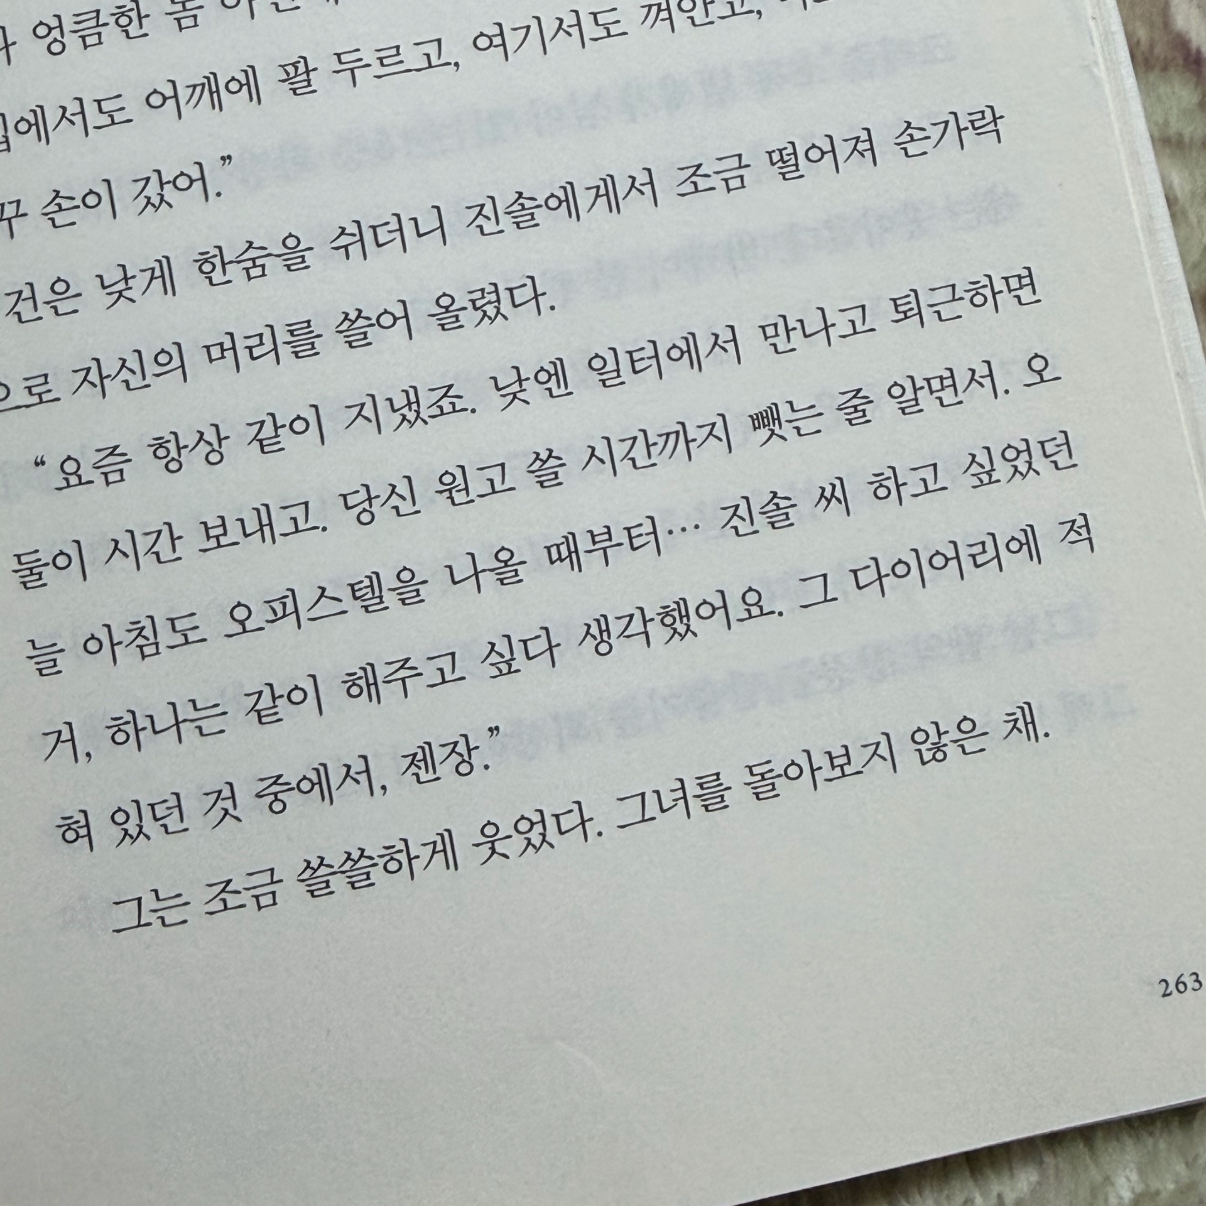 엉큼한
어깨에 팔 두르고, 여기서도 껴안고,
손이 갔어.”
건은 낮게 한숨을 쉬더니 진솔에게서 조금 떨어져 손가락
으로 자신의 머리를 쓸어 올렸다.
“요즘 항상 같이 지냈죠. 낮엔 일터에서 만나고 퇴근하면
둘이 시간 보내고. 당신 원고 쓸 시간까지 뺏는 줄 알면서. 오
늘 아침도 오피스텔을 나올 때부터… 진솔 씨 하고 싶었던
거, 하나는 같이 해주고 싶다 생각했어요. 그 다이어리에 적
혀 있던 것 중에서, 젠장.”
그는 조금 쓸쓸하게 웃었다. 그녀를 돌아보지 않은 채.
263